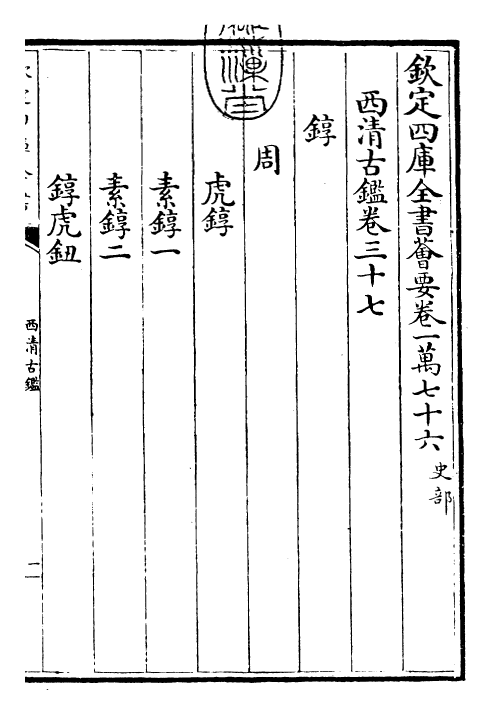 欽定四庫全書薈要卷一萬七十六 史部
西清古鑑卷三十七
錞
周
虎錞
素錞一
素錞二
錞虎鈕
西清古鑑